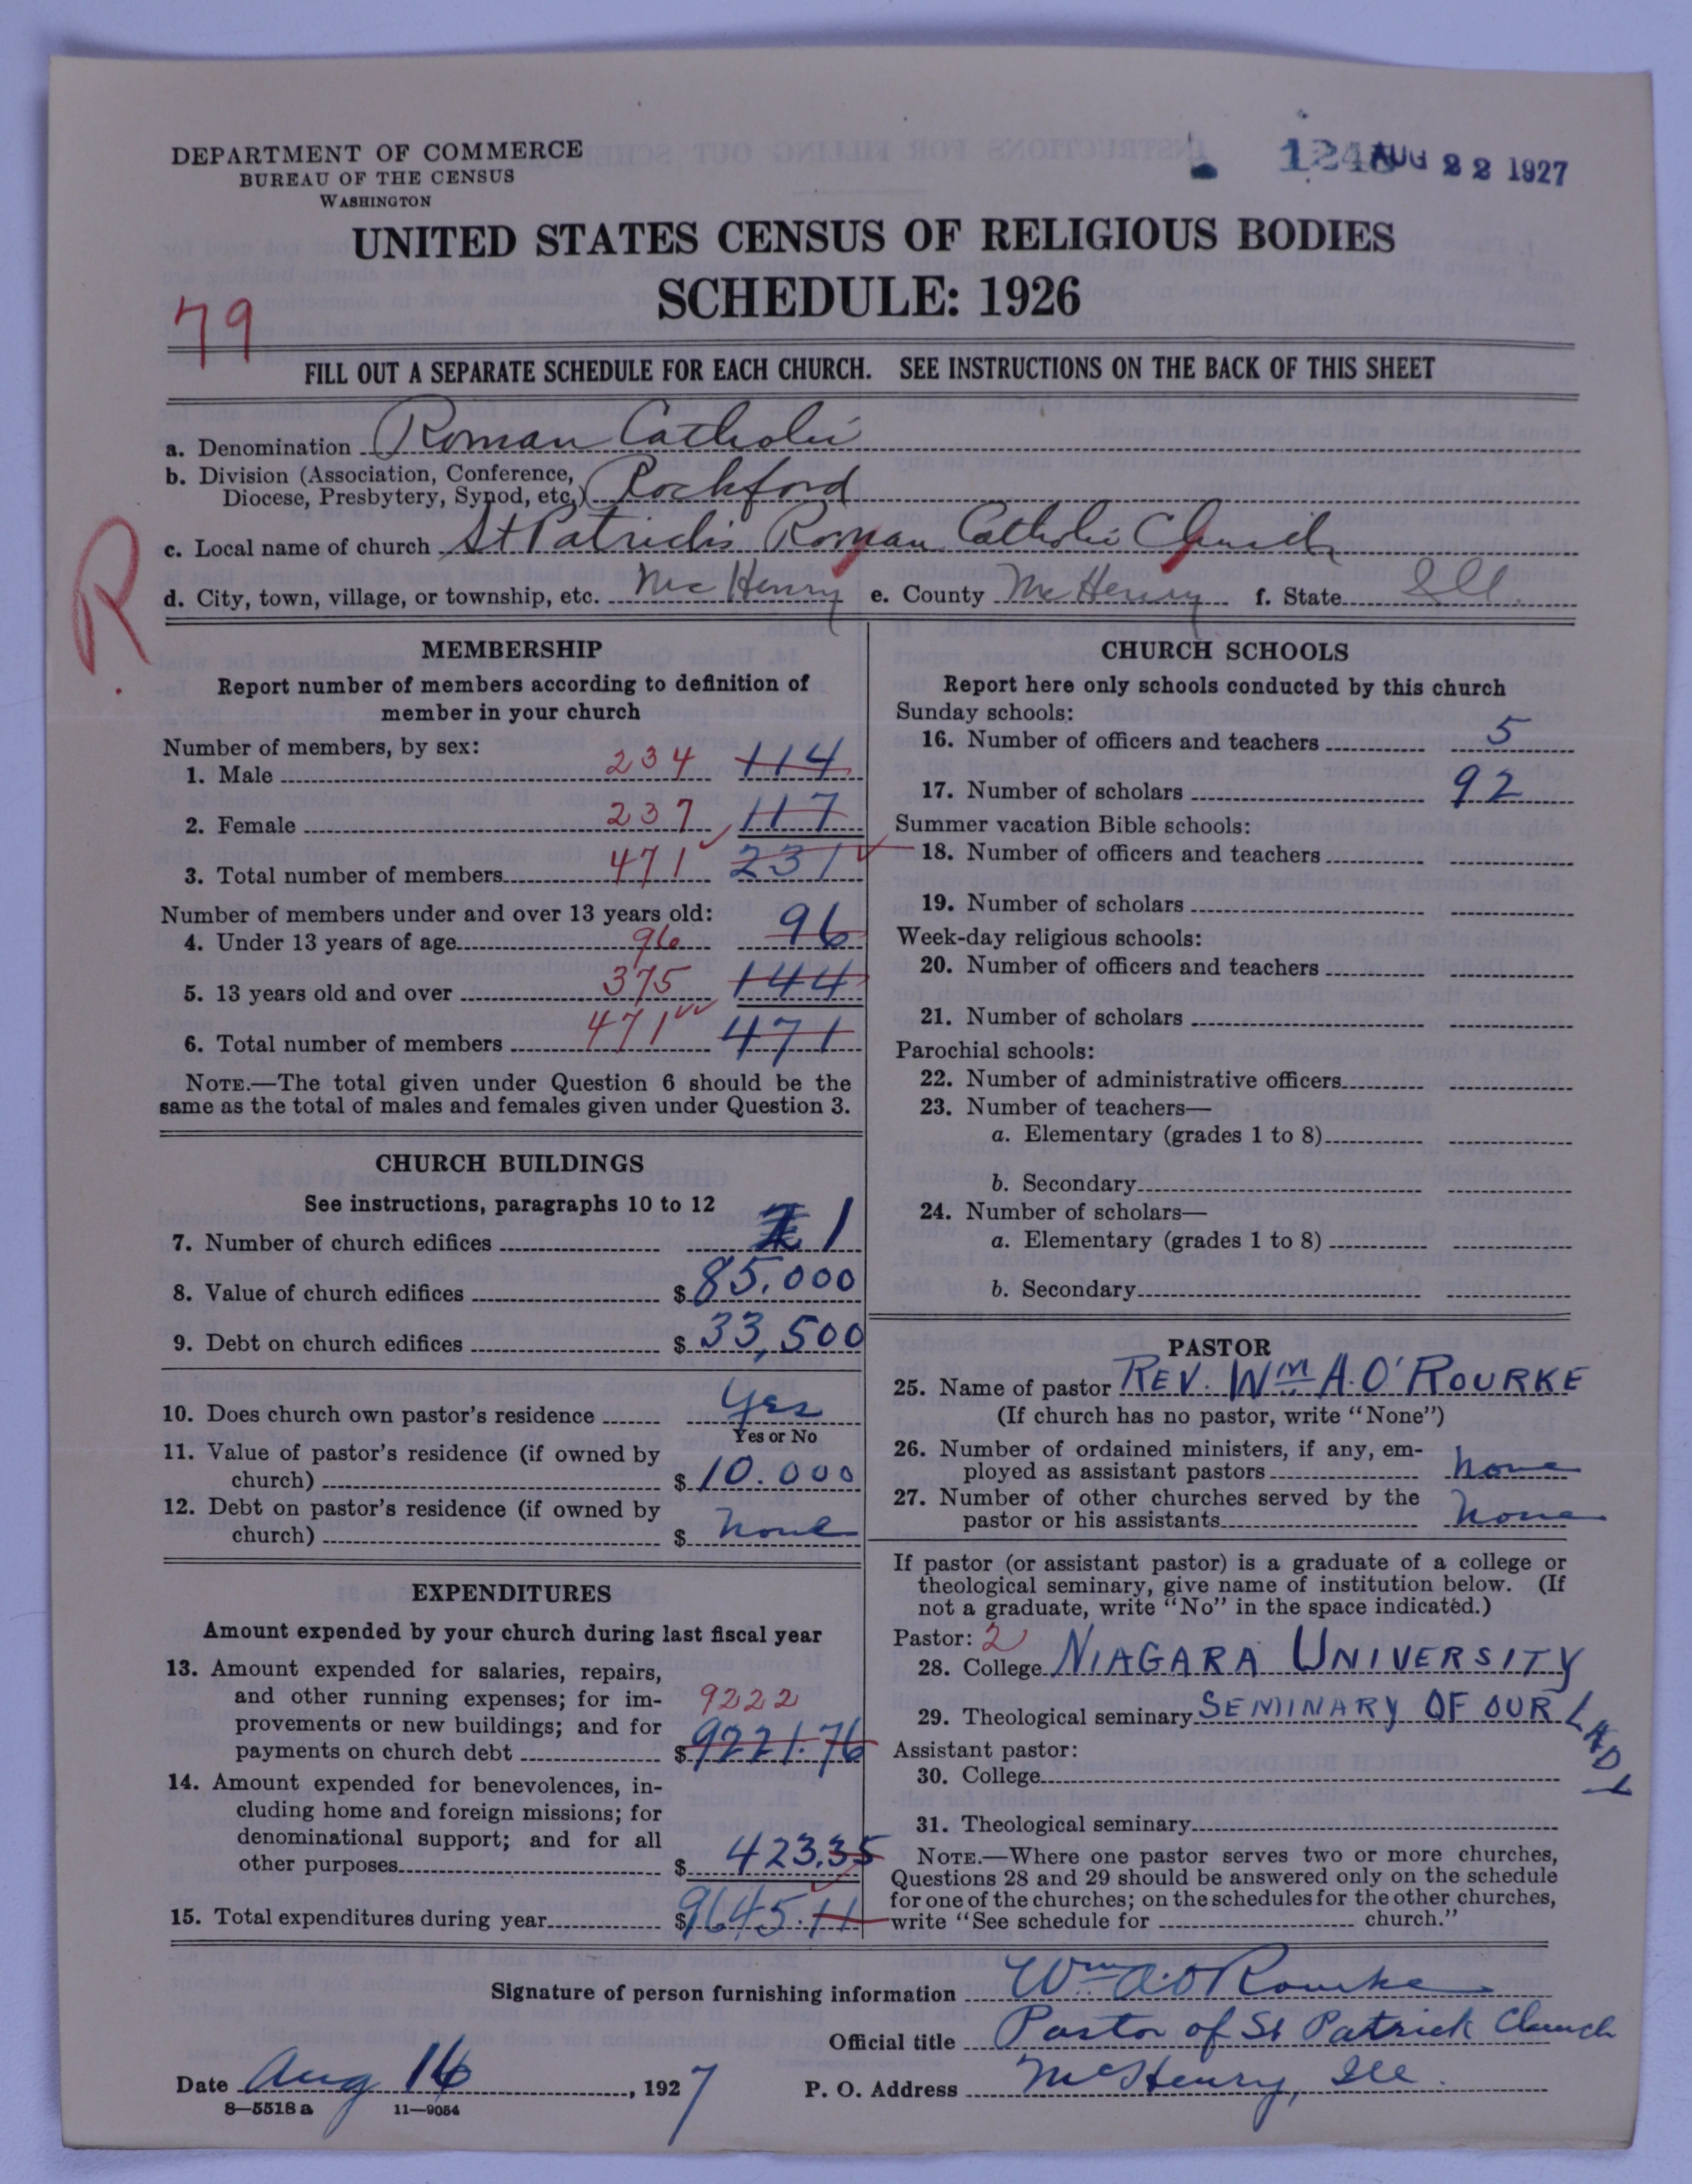 DEPARTMENT OF COMMERCE
BUREAU OF THE CENSUS
WASHINGTON
AUG 22 1927
UNITED STATES CENSUS OF RELIGIOUS BODIES
SCHEDULE: 1926
79
FILL OUT A SEPARATE SCHEDULE FOR EACH CHURCH. SEE INSTRUCTIONS ON THE BACK OF THIS SHEET
a. Denomination Roman Catholic
b. Division (Association, Conference,
Diocese, Presbytery, Synod, etc.) Rockford
c. Local name of church St Patrick's Roman Catholic Church
d. City, town, village, or township, etc. McHenry e. County McHenry f. State Ill.
R.
MEMBERSHIP
Report number of members according to definition of
member in your church
Number of members, by sex:
1. Male 234 114
2. Female 237 117
3. Total number of members 471 231
Number of members under and over 13 years old:
4. Under 13 years of age 96 96
5. 13 years old and over 375 144
6. Total number of members 471 471
NOTE.—The total given under Question 6 should be the
same as the total of males and females given under Question 3.
CHURCH BUILDINGS
See instructions, paragraphs 10 to 12
7. Number of church edifices 1
8. Value of church edifices $ 85.000
9. Debt on church edifices $ 33,500
10. Does church own pastor's residence Yes
Yes or No
11. Value of pastor's residence (if owned by
church) $ 10.000
12. Debt on pastor's residence (if owned by
church) $ none
EXPENDITURES
Amount expended by your church during last fiscal year
13. Amount expended for salaries, repairs,
and other running expenses; for im- 9222
provements or new buildings; and for
payments on church debt $ 9221.76
14. Amount expended for benevolences, in-
cluding home and foreign missions; for
denominational support; and for all
other purposes $ 423.35
15. Total expenditures during year $ 9645.11
CHURCH SCHOOLS
Report here only schools conducted by this church
Sunday schools:
16. Number of officers and teachers 5
17. Number of scholars 92
Summer vacation Bible schools:
18. Number of officers and teachers
19. Number of scholars
Week-day religious schools:
20. Number of officers and teachers
21. Number of scholars
Parochial schools:
22. Number of administrative officers
23. Number of teachers—
a. Elementary (grades 1 to 8)
b. Secondary
24. Number of scholars—
a. Elementary (grades 1 to 8)
b. Secondary
PASTOR
25. Name of pastor REV. Wm A. O'ROURKE
(If church has no pastor, write "None")
26. Number of ordained ministers, if any, em-
ployed as assistant pastors none
27. Number of other churches served by the
pastor or his assistants none
If pastor (or assistant pastor) is a graduate of a college or
theological seminary, give name of institution below. (If
not a graduate, write "No" in the space indicated.)
Pastor: 2
28. College NIAGARA UNIVERSITY
29. Theological seminary SEMINARY OF OUR LADY
Assistant pastor:
30. College
31. Theological seminary
NOTE.—Where one pastor serves two or more churches,
Questions 28 and 29 should be answered only on the schedule
for one of the churches; on the schedules for the other churches,
write "See schedule for church."
Signature of person furnishing information Wm A O'Rourke
Official title Pastor of St Patrick Church
Date Aug 16, 1927 P. O. Address McHenry, Ill.
8—5518 a 11—9054